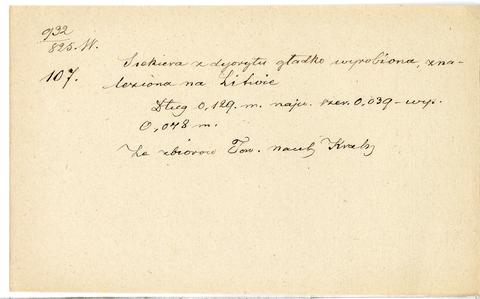 932
825. W.
107.
Siekiera z dyorytu gładko wyrobiona, zna-
leziona na Litwie
Dług 0,129. m. najw. szer. 0,039 – wys.
0,048 m.
Ze zbiorów Tow. nauk Krak